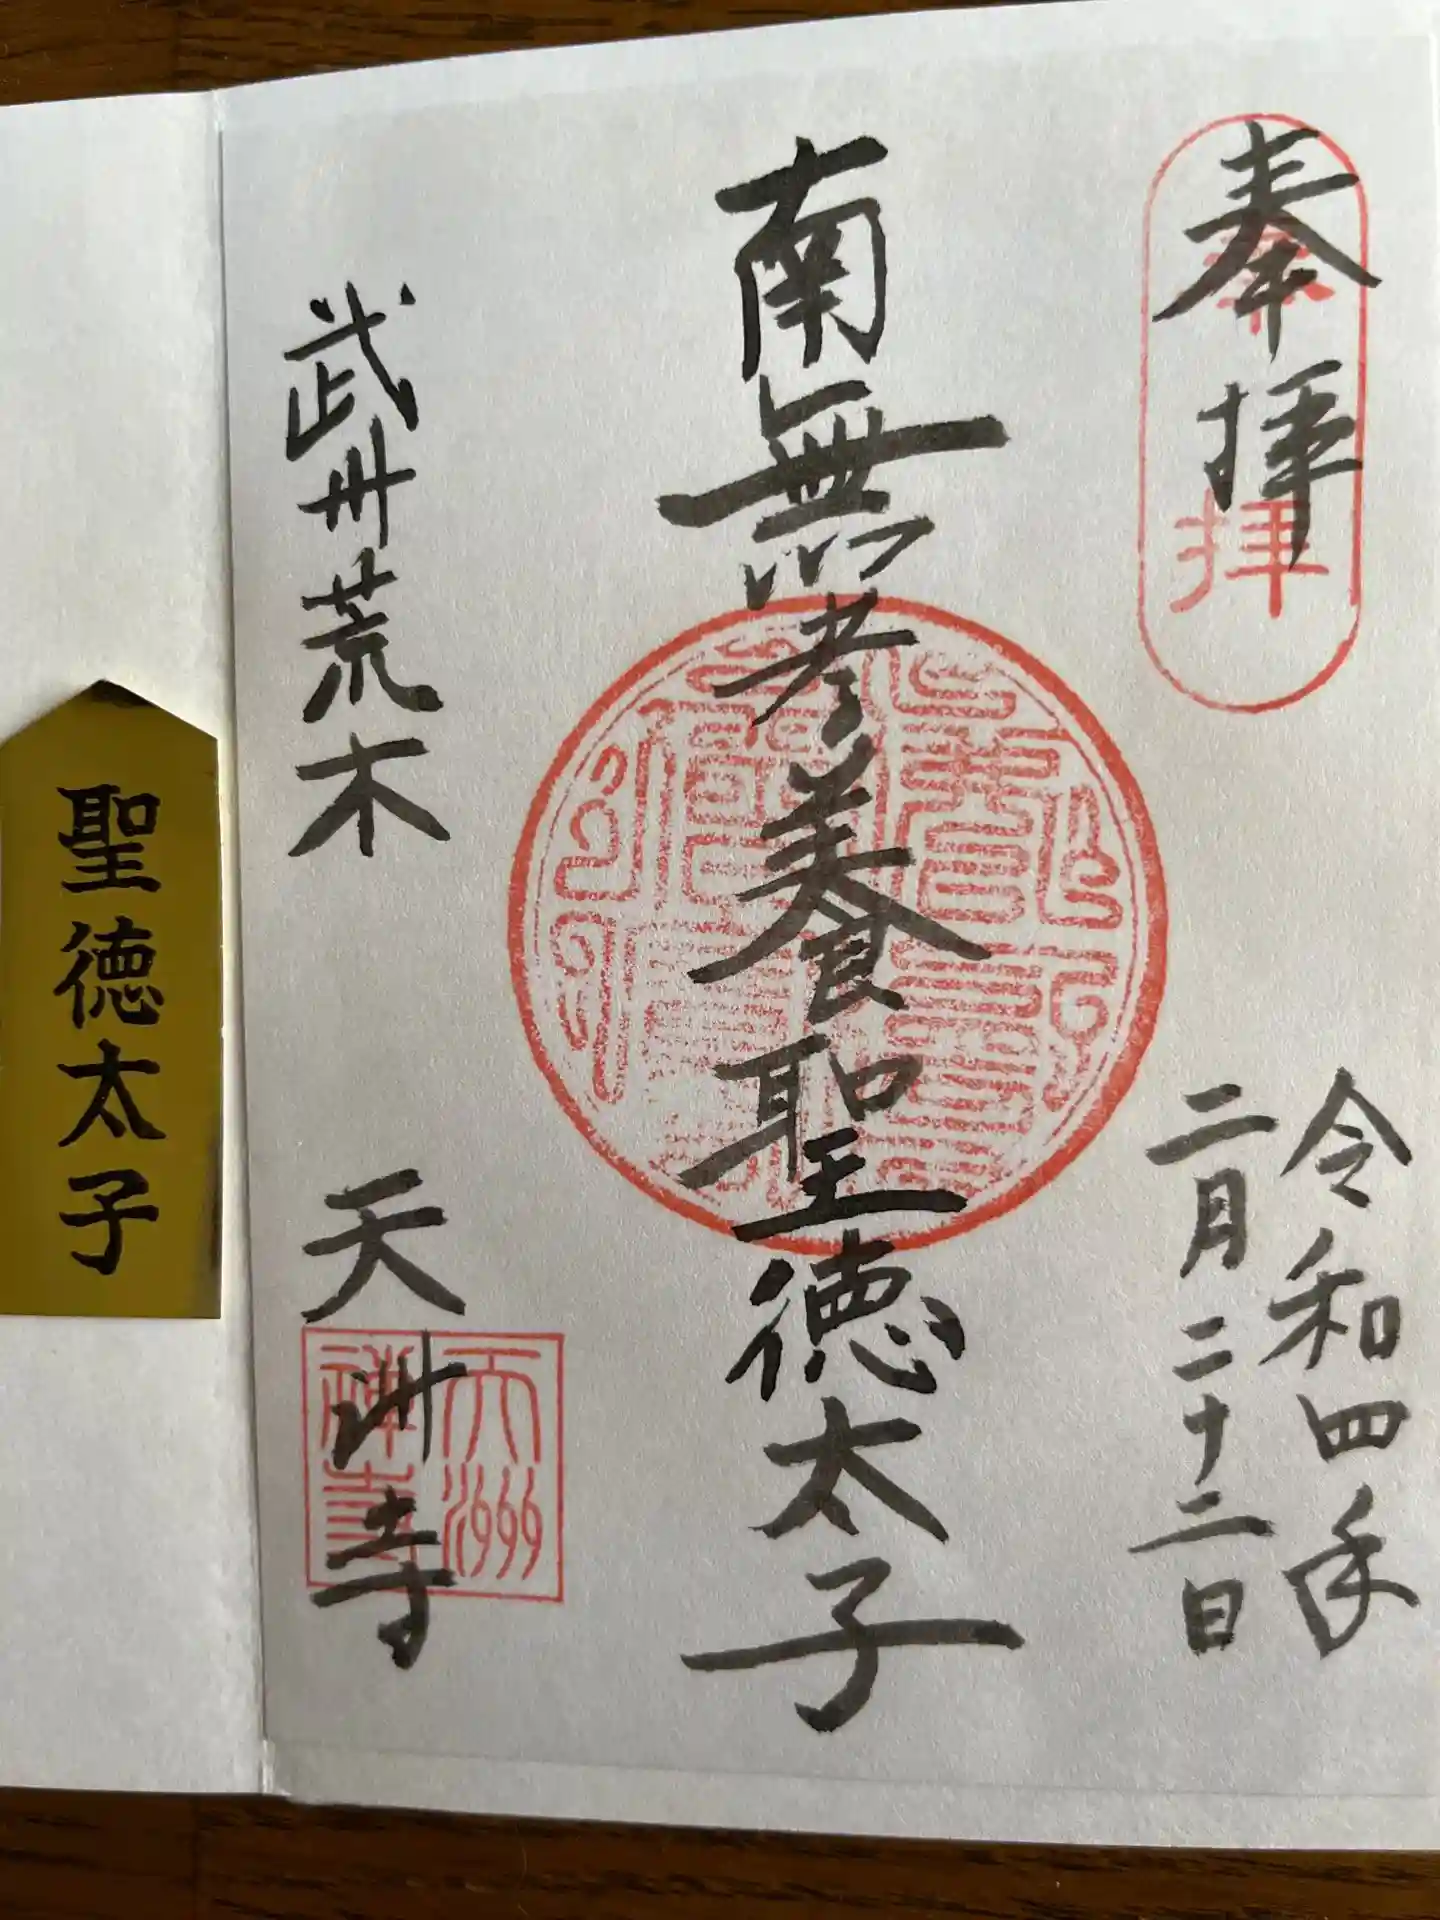 奉拝
奉拝
令和四年
二月二十二日
南無孝養聖徳太子
武州荒木
天洲寺
天洲
禅寺
聖徳太子